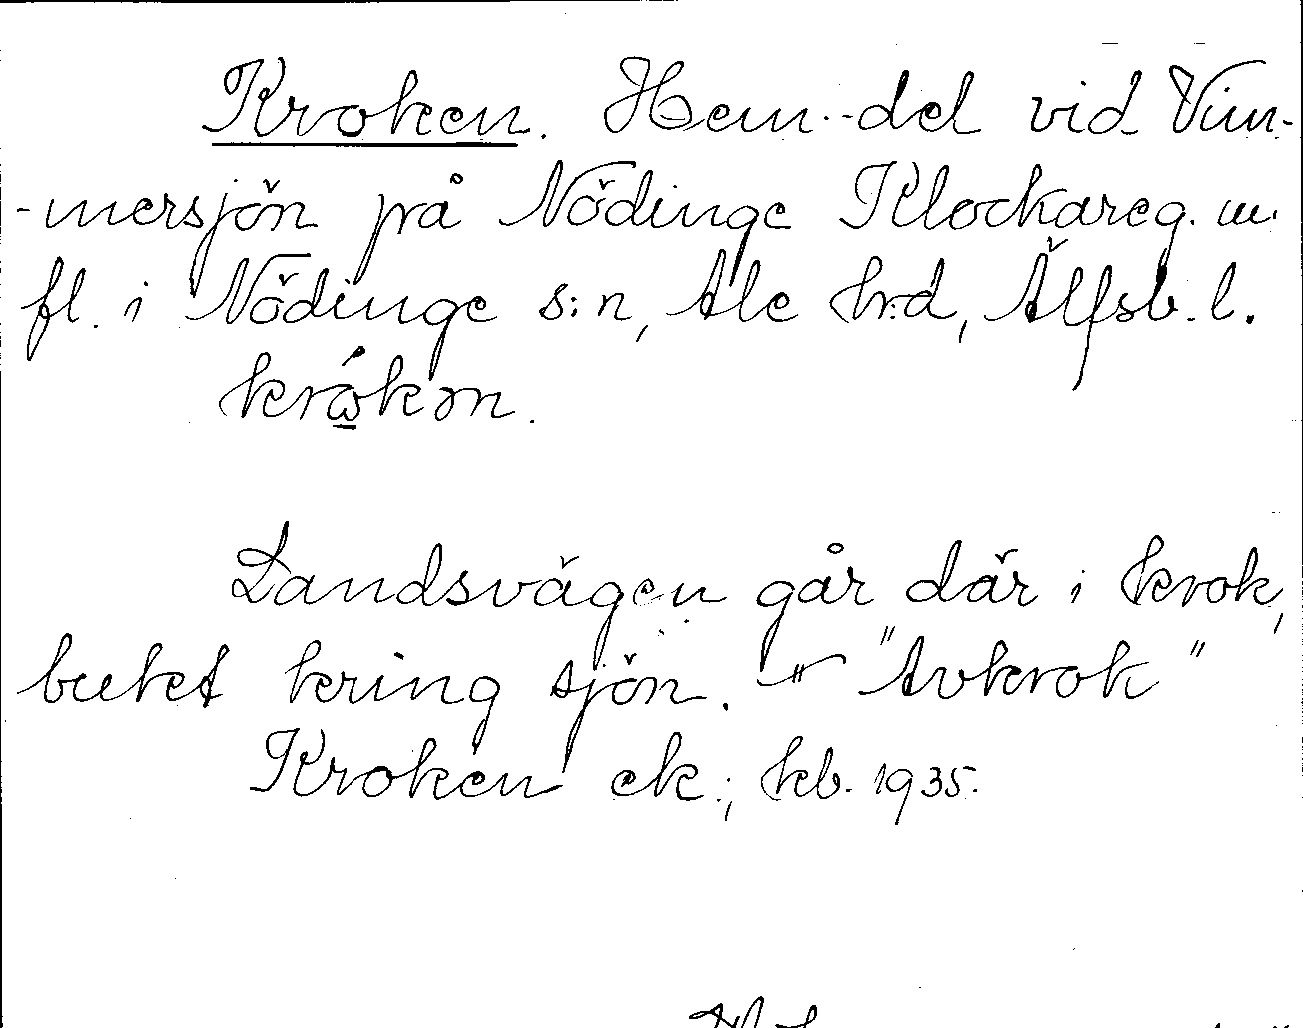 Kroken. Hem.-del vid Vim-
-mersjön på Nödinge Klockareg. m.
fl. i Nödinge s:n, Ale hrd, Älfsb. l.
Landsvägen går där i krok,
buktet kring sjön. "Avkrok"
Kroken ek.; kb. 1935.